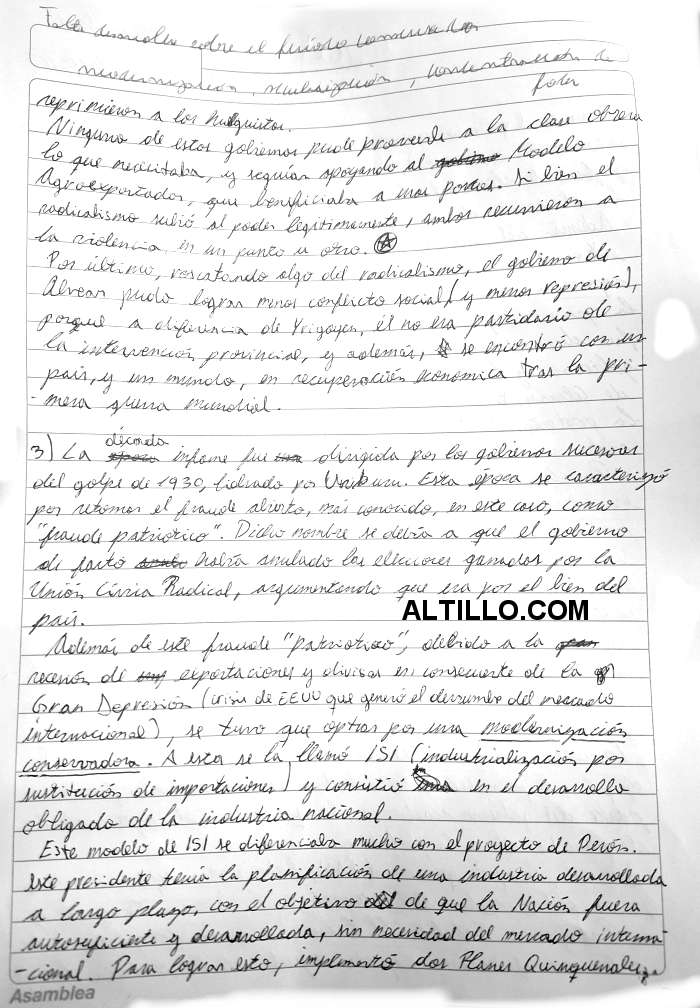 Falta desarrollar sobre el período conservador
modernización, secularización, concentración de
poder
reprimieron a los huelguistas.
Ninguno de estos gobiernos pudo proveerle a la clase obrera
lo que necesitaba, y seguían apoyando al Modelo
Agroexportador, que beneficiaba a unos pocos. Si bien el
radicalismo subió al poder legítimamente, ambos recurrieron a
la violencia en un punto u otro.
Por último, rescatando algo del radicalismo, el gobierno de
Alvear pudo lograr menos conflicto social (y menos represión),
porque a diferencia de Yrigoyen, él no era partidario de
la intervención provincial, y además, se encontró con un
país, y un mundo, en recuperación económica tras la pri-
-mera guerra mundial.
3) La década infame fue dirigida por los gobiernos sucesores
del golpe de 1930, liderado por Uriburu. Esta época se caracterizó
por retomar el fraude abierto, más conocido, en este caso, como
"fraude patriótico". Dicho nombre se debía a que el gobierno
de facto había anulado las elecciones ganadas por la
Unión Cívica Radical, argumentando que era por el bien del
país.
ALTILLO.COM
Además de este fraude "patriótico", debido a la
recesión de exportaciones y divisas en consecuente de la
Gran Depresión (crisis de EEUU que generó el derrumbe del mercado
internacional), se tuvo que optar por una modernización
conservadora. A esta se la llamó ISI (industrialización por
sustitución de importaciones) y consistió en el desarrollo
obligado de la industria nacional.
Este modelo de ISI se diferenciaba mucho con el proyecto de Perón.
Este presidente tenía la planificación de una industria desarrollada
a largo plazo, con el objetivo de que la Nación fuera
autosuficiente y desarrollada, sin necesidad del mercado interna-
-cional. Para lograr esto, implementó dos Planes Quinquenales
Asamblea